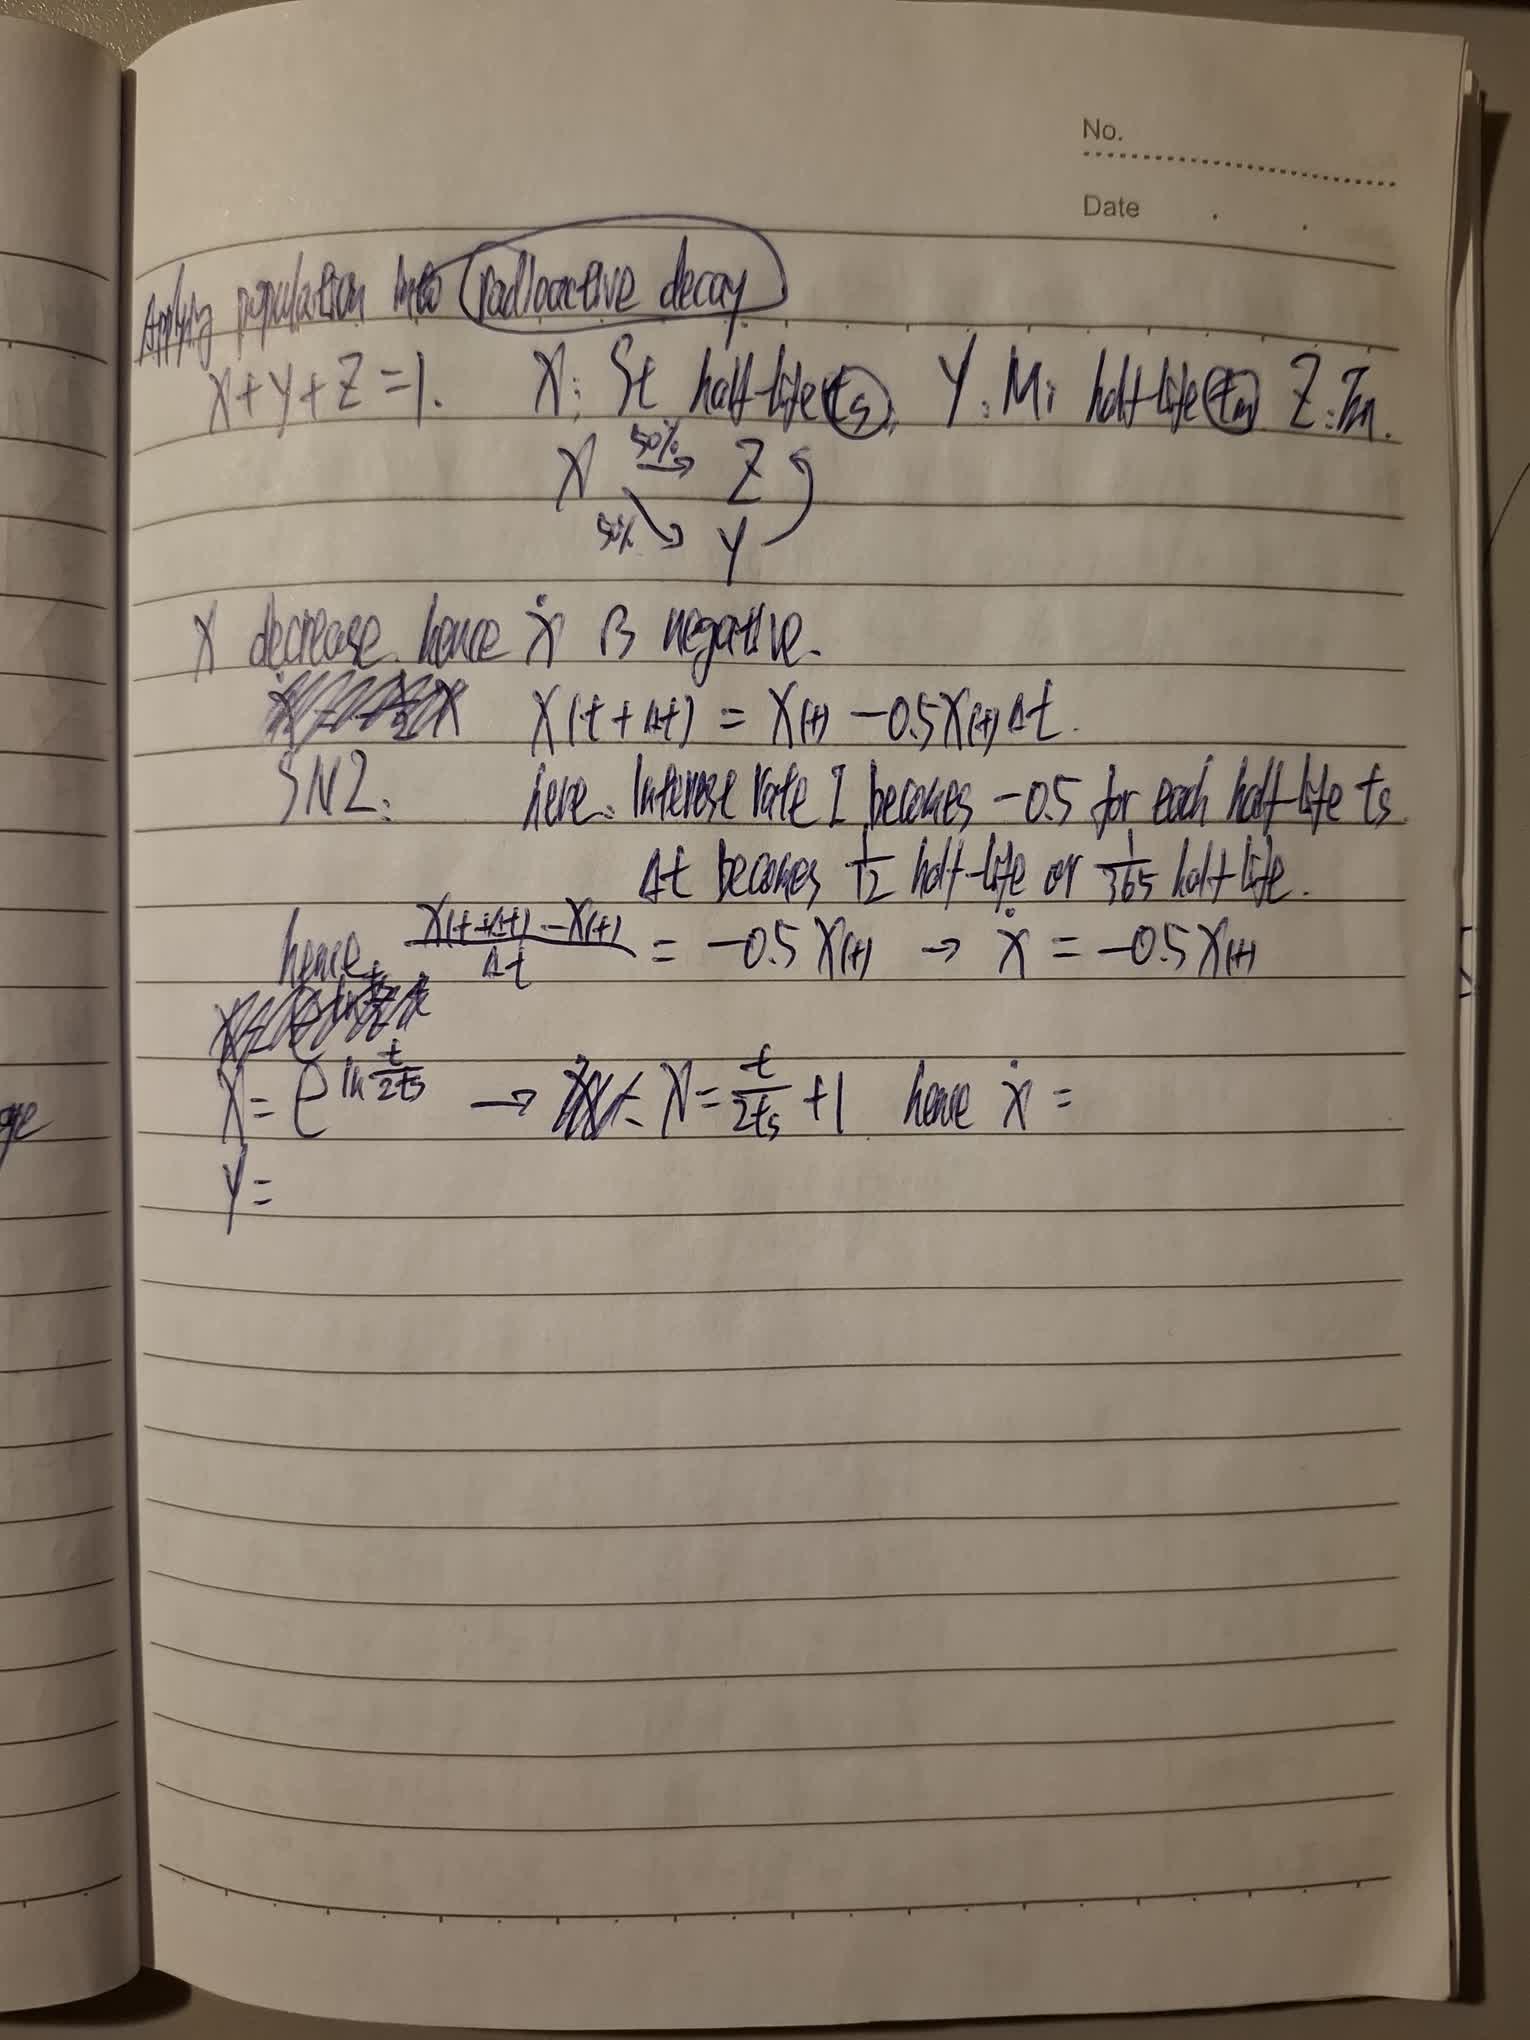 No.
Date
Applying population into radioactive decay
X+Y+Z=1. X: St half-life ts, Y: Mi half-life tm Z: Tm.
X 50% → Z
50% ↘ Y
X decrease. hence ẋ is negative.
X(t+Δt) = X(t) −0.5X(t)Δt.
SN2: here: Interest rate I becomes −0.5 for each half-life ts
Δt becomes 1/12 half-life or 1/365 half life.
hence, X(t+Δt)−X(t)/Δt = −0.5 X(t) → ẋ = −0.5X(t)
X= e^ln t/2ts → X= t/2ts +1 hence ẋ =
Y=